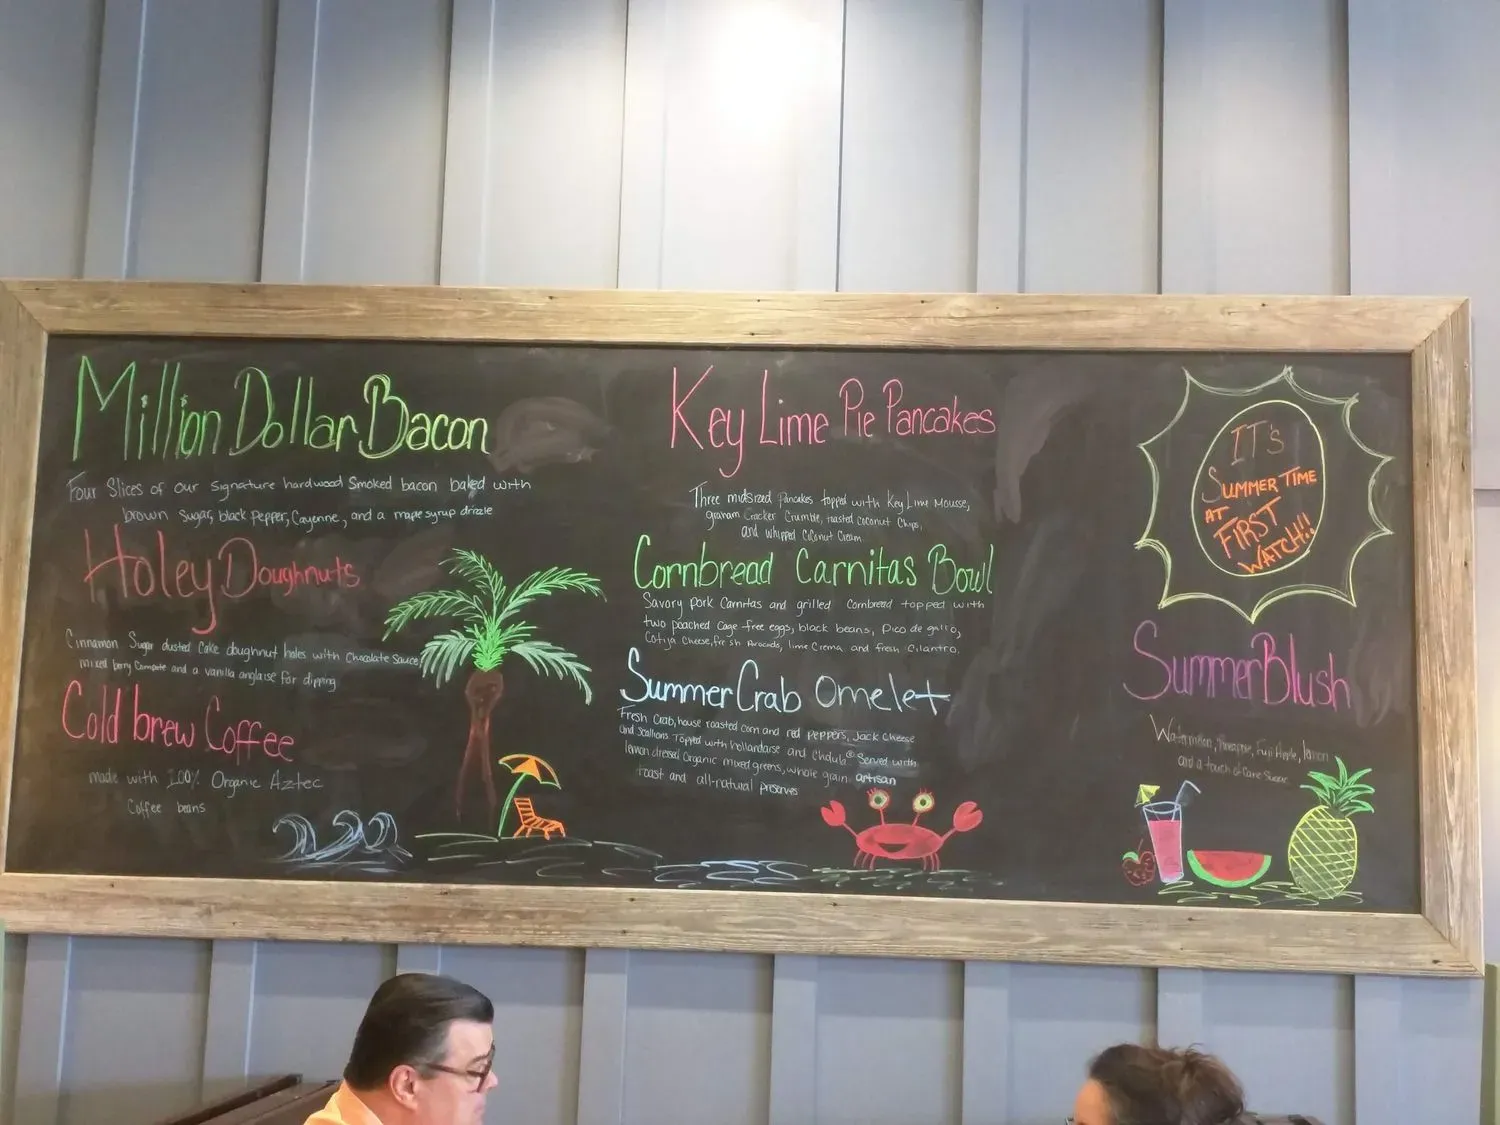 Million Dollar Bacon
Four Slices of our signature hardwood Smoked bacon baked with
brown Sugar, black pepper, Cayenne, and a maple syrup drizzle
Holey Doughnuts
Cinnamon Sugar dusted Cake doughnut holes with Chocolate Sauce,
mixed berry Compote and a vanilla anglaise for dipping
Cold brew Coffee
made with 100% Organic Aztec
Coffee beans
Key Lime Pie Pancakes
Three midsized Pancakes topped with Key Lime Mousse,
graham Cracker Crumble, toasted Coconut Chips,
and whipped Coconut Cream.
Cornbread Carnitas Bowl
Savory pork Carnitas and grilled Cornbread topped with
two poached Cage-free eggs, black beans, Pico de gallo,
Cotija Cheese, fresh Avocado, lime Crema, and fresh Cilantro.
Summer Crab Omelet
Fresh Crab, house roasted corn and red peppers, Jack Cheese
and Scallions. Topped with hollandaise and Cholula® Served with
lemon dressed Organic mixed greens, whole grain artisan
toast and all-natural preserves
IT'S
SUMMER TIME
AT
FIRST
WATCH!!
Summer Blush
Watermelon, Pineapple, Fuji Apple, lemon
and a touch of Cane Sugar